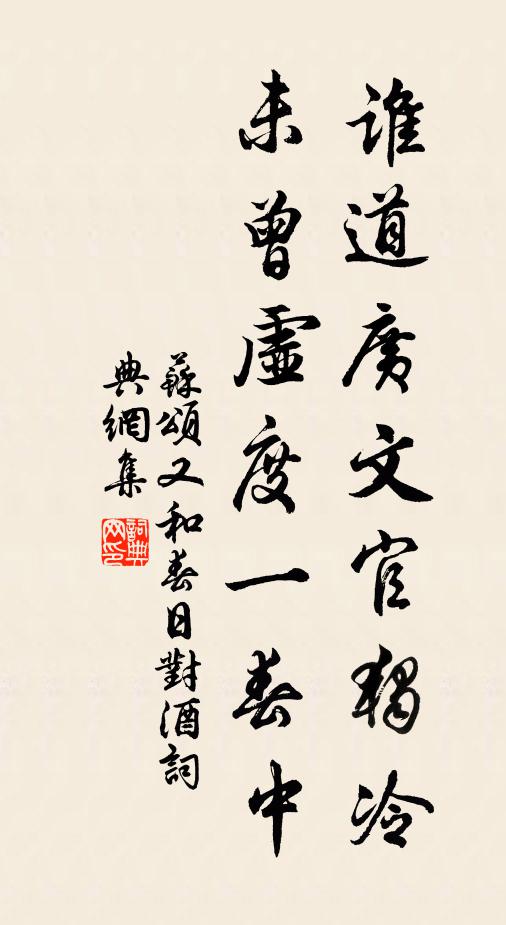 誰道廣文官獨冷
未曾虛度一春中
蘇頌又和春日對酒詞
典網集
詞典
网印